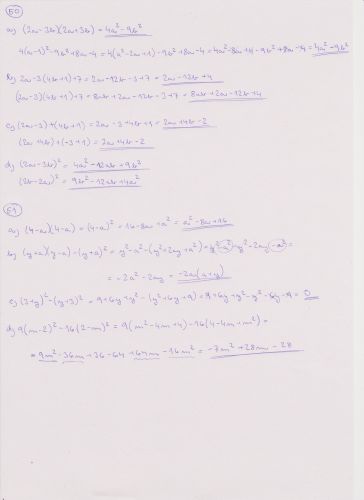 50
a) (2a-3b)(2a+3b) = 4a²-9b²
4(a-1)²-9b²+8a-4 = 4(a²-2a+1)-9b²+8a-4 = 4a²-8a+4-9b²+8a-4 = 4a²-9b²
b) 2a-3(4b+1)+7 = 2a-12b-3+7 = 2a-12b+4
(2a-3)(4b+1)+7 = 8ab+2a-12b-3+7 = 8ab+2a-12b+4
c) (2a-3)+(4b+1) = 2a-3+4b+1 = 2a+4b-2
(2a+4b)+(-3+1) = 2a+4b-2
d) (2a-3b)² = 4a²-12ab+9b²
(3b-2a)² = 9b²-12ab+4a²
51
a) (4-a)(4-a) = (4-a)² = 16-8a+a² = a²-8a+16
b) (y+a)(y-a)-(y+a)² = y²-a²-(y²+2ay+a²) = y²-a²-y²-2ay-a² =
= -2a²-2ay = -2a(a+y)
c) (3+y)²-(y+3)² = 9+6y+y²-(y²+6y+9) = 9+6y+y²-y²-6y-9 = 0
d) 9(m-2)²-16(2-m)² = 9(m²-4m+4)-16(4-4m+m²) =
= 9m²-36m+36-64+64m-16m² = -7m²+28m-28